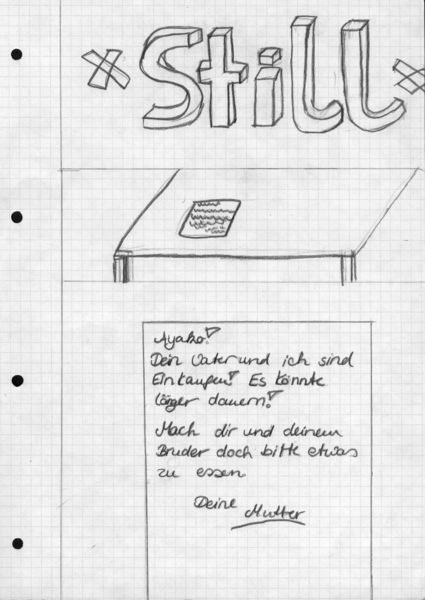 *Still*
Ayako!
Dein Vater und ich sind
Einkaufen! Es könnte
länger dauern!
Mach dir und deinem
Bruder doch bitte etwas
zu essen
Deine
Mutter